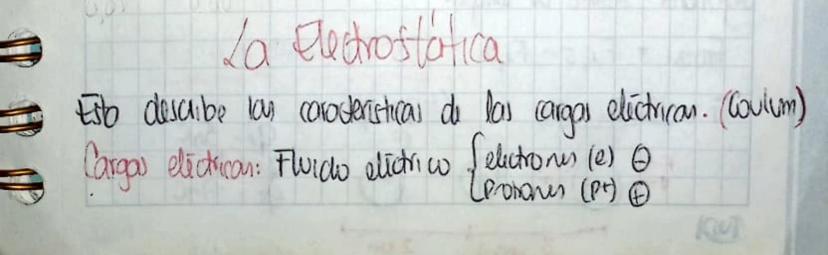 La Electrostática
Esto describe las características de las cargas eléctricas. (Coulum)
Cargas eléctricas: Fluido eléctrico { electrones (e) ⊖
protones (P+) ⊕